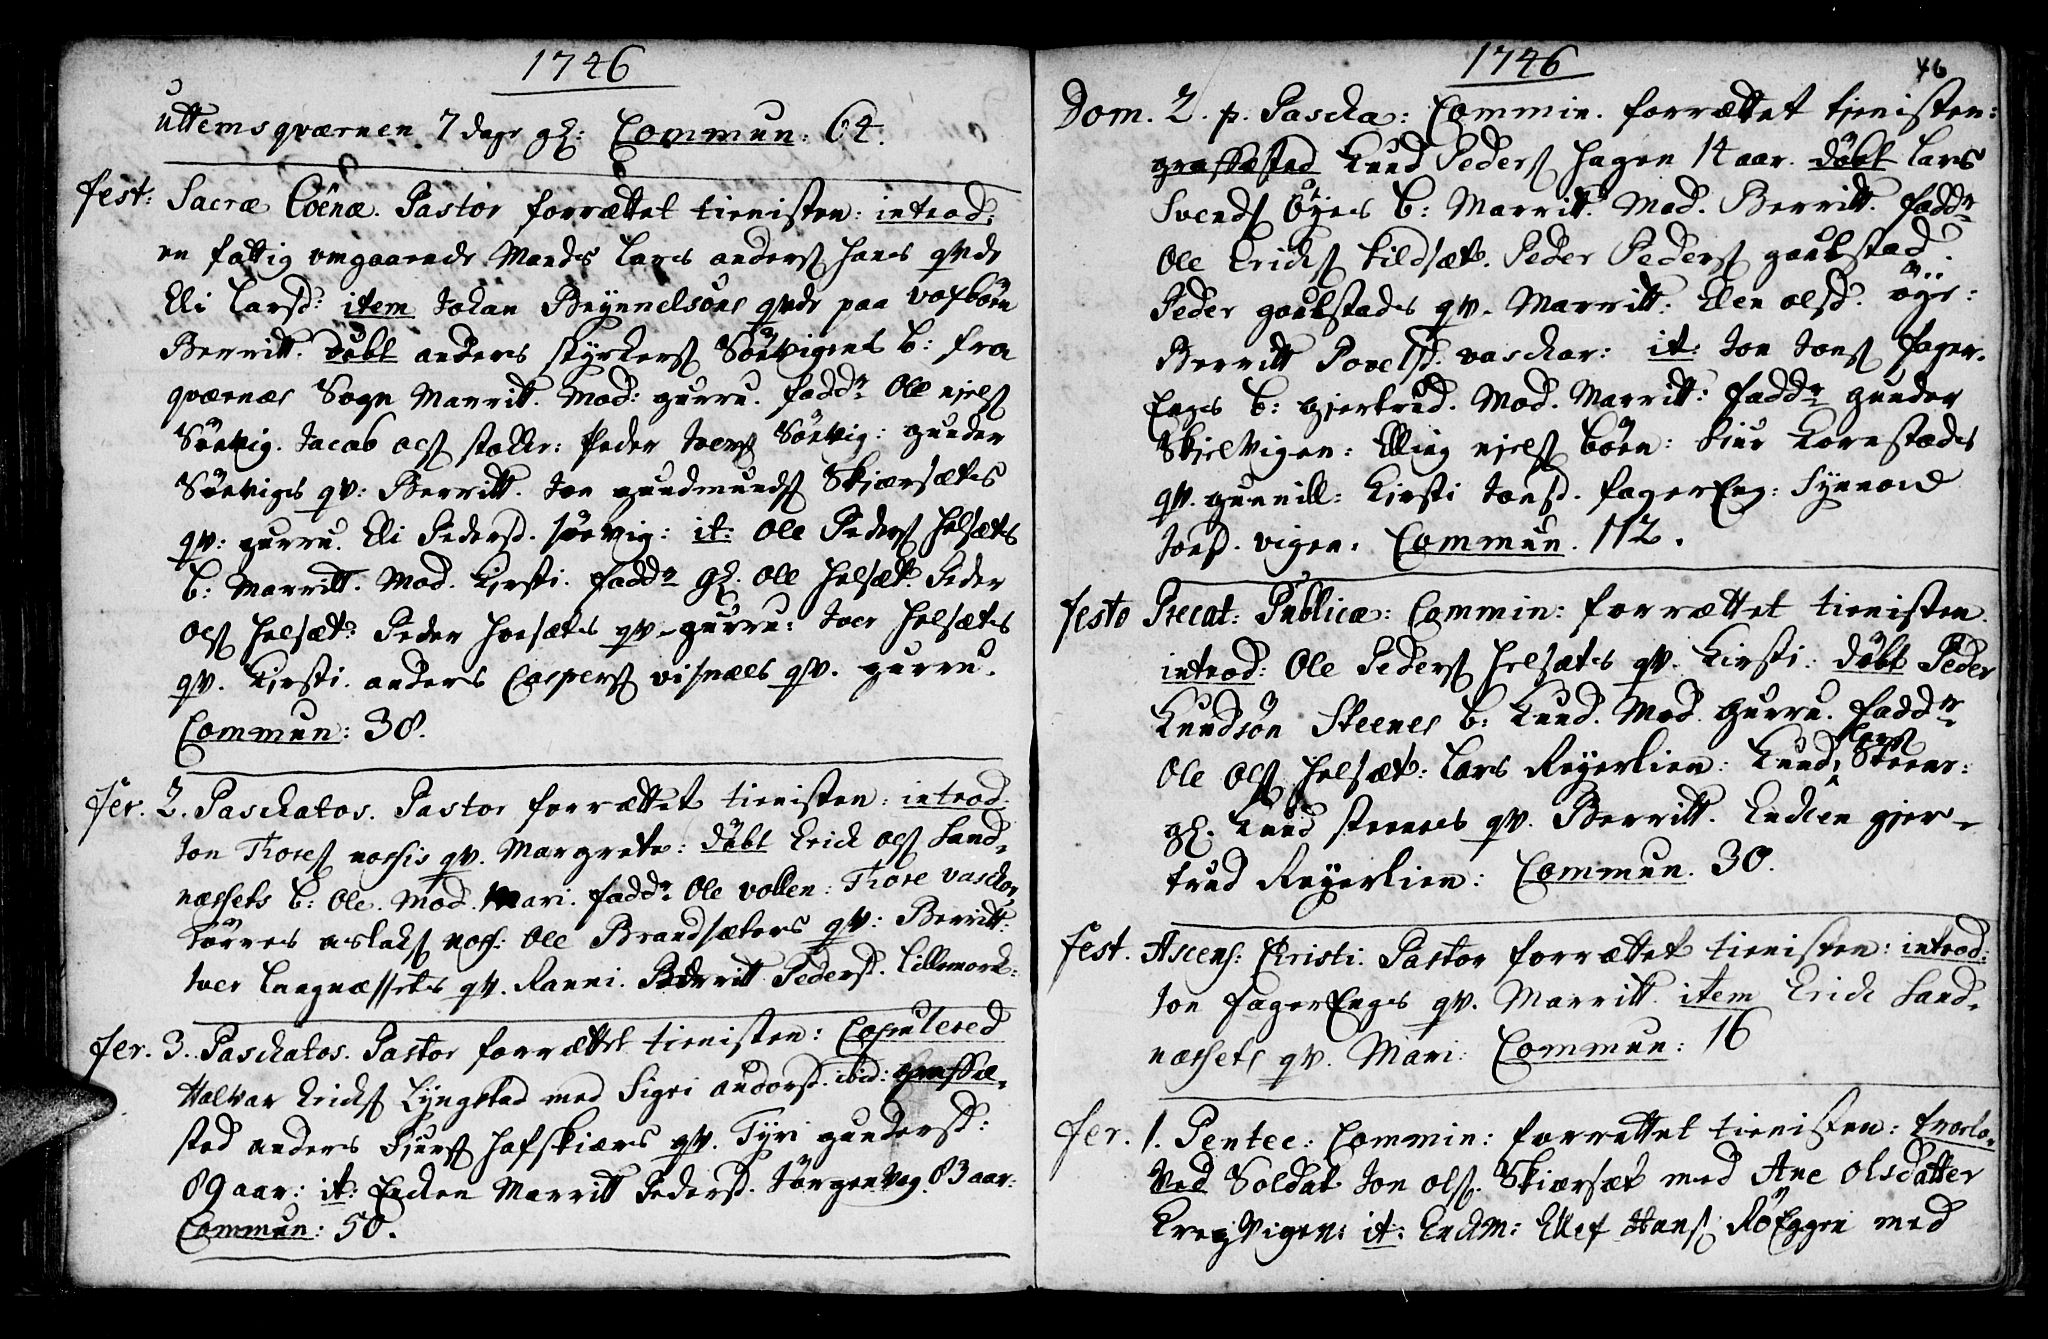 1746
uttemsqværnen 7 dage gl: Commun: 64.
fest: Sacræ Cöenæ. Pastor forrættet tienisten: introd:
en fattig omgaaende Mands Lars anders hans qvde
Eli Larsd: item Johan Brynnelsöns qvde paa
Berritt. döbt anders styrkers Söevigens b: fra
qværnæs Sogn Marritt. Mod: gurru. fadd: Ole niels
Söevig. Jacob ols Peder Ivers Söevig: gunder
Söeviges qv: Berritt. Jon gundmunds Skjærsætes
qv: gurru. Eli Pedersd. söevig: it: Ole Peders helsæts
b: Marritt. Mod. Kirsti. fadd: gl. Ole helsæt. Peder
ols helsæt: Peder qv. gurru: Iver helsæts
qv. Kirsti. anders Caspers visnæs qv. gurru.
Commun: 30.
fer. 2. Paschatos. Pastor forrættet tienisten: introd:
Jon Thores qv. Margrete: döbt Erick ols Sand-
næssets b: Ole. Mod. Mari. fadd: Ole vollen: Thore
Törres aslaks Ole Brandsæters qv: Berritt:
Iver Langnæssets qv. Ranni. Berritt Pedersd.
fer. 3. Paschatos. Pastor forrættet tienisten: Copulered
Halvar Ericks Lyngstad med Sigri andersd. ibid: graffæ-
sted anders Siurs Hafskiærs qv. Tyri gundersd:
89 aar: it: Encken Marritt Pedersd. Jörgenvog. 83 aar:
Commun: 50.
1746
46
Dom. 2. p. Pascha: Commin. forrættet tienisten:
graffæsted Knud Peders hagen 14 aar. döbt Lars
Svends Öyes b: Marritt. Mod. Berritt. fadd:
Ole Ericks Kildsæt. Peder Peders gaulstad.
Peder gaulstads qv. Marritt: Elen olsd. öye:
Berritt Povelsd. vaschar: it: Jon Jons fager-
Engs b: gjertrud. Mod. Marritt: fadd: gunder
Skjelvigen: Elling niels böen: Siur Kornstads
qv. gunnill: Kirsti Jonsd. fagerEng: Synnove
Jonsd. vigen. Commun. 112.
festo Precat: Publicæ: Commin: forrættet tienisten.
introd: Ole Peders helsæts qv. Kirsti. döbt Peder
Knudsön Steenes b: Knud. Mod. gurru. fadd:
Ole Ols helsæt: Lars Reyerlien: Knud Lars Steenes:
gl. Knud steenes qv. Berritt. Encken gjer-
trud Reyerlien: Commun. 30.
fest. Ascens: Christi. Pastor forrættet tienisten: introd:
Jon fagerEngs qv. Marritt. item Erick Sand-
næssets qv. Mari: Commun: 16
fer. 1. Pentec: Commin: forrættet tienisten: trolo-
ved Soldat Jon ols. Skiærsæt med Ane Olsdatter
Kregvigen: it: Enckm: Ellef Hans Röeggen med